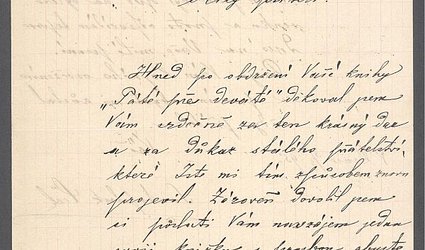 Hned po obdržení Vaší knihy
„Páté přes deváté" děkoval jsem
Vám srdečně za ten krásný dar
a za důkaz stálého přátelství,
které Jste mi tím způsobem znovu
projevil. Zároveň dovolil jsem
si poslati Vám navzájem jednu
svoji knížku s prosbou, abyste